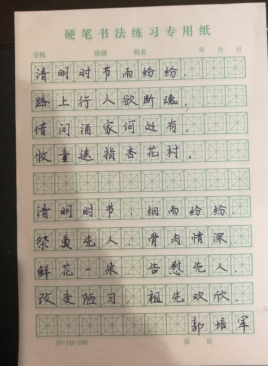 硬笔书法练习专用纸
学校 班级 姓名 年 月 日
清明时节雨纷纷
路上行人欲断魂.
借问酒家何处有.
牧童遥指杏花村.
清明时节,细雨纷纷.
祭奠先人.骨肉情深.
鲜花一束 告慰先人.
改变陋习.祖先欢欣.
郭培军
10×10=100 第 页